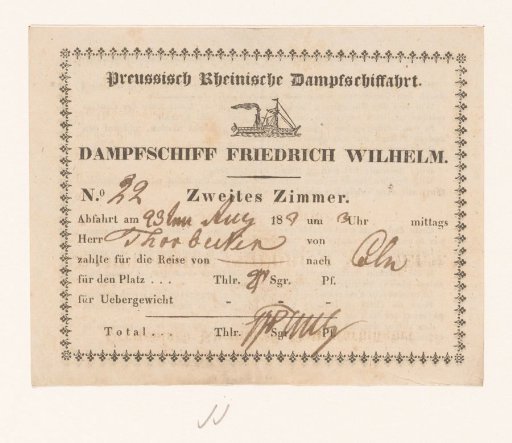 Preussisch Rheinische Dampfschiffahrt.
DAMPFSCHIFF FRIEDRICH WILHELM.
N.o 22 Zweites Zimmer.
Abfahrt am Aug 18 um 3 Uhr mittags
Herr Thorbecken von
zahlte für die Reise von nach Cöln
für den Platz . . . Thlr. Sgr. Pf.
für Uebergewicht - - -
Total . . . Thlr. Sgr. Pf.